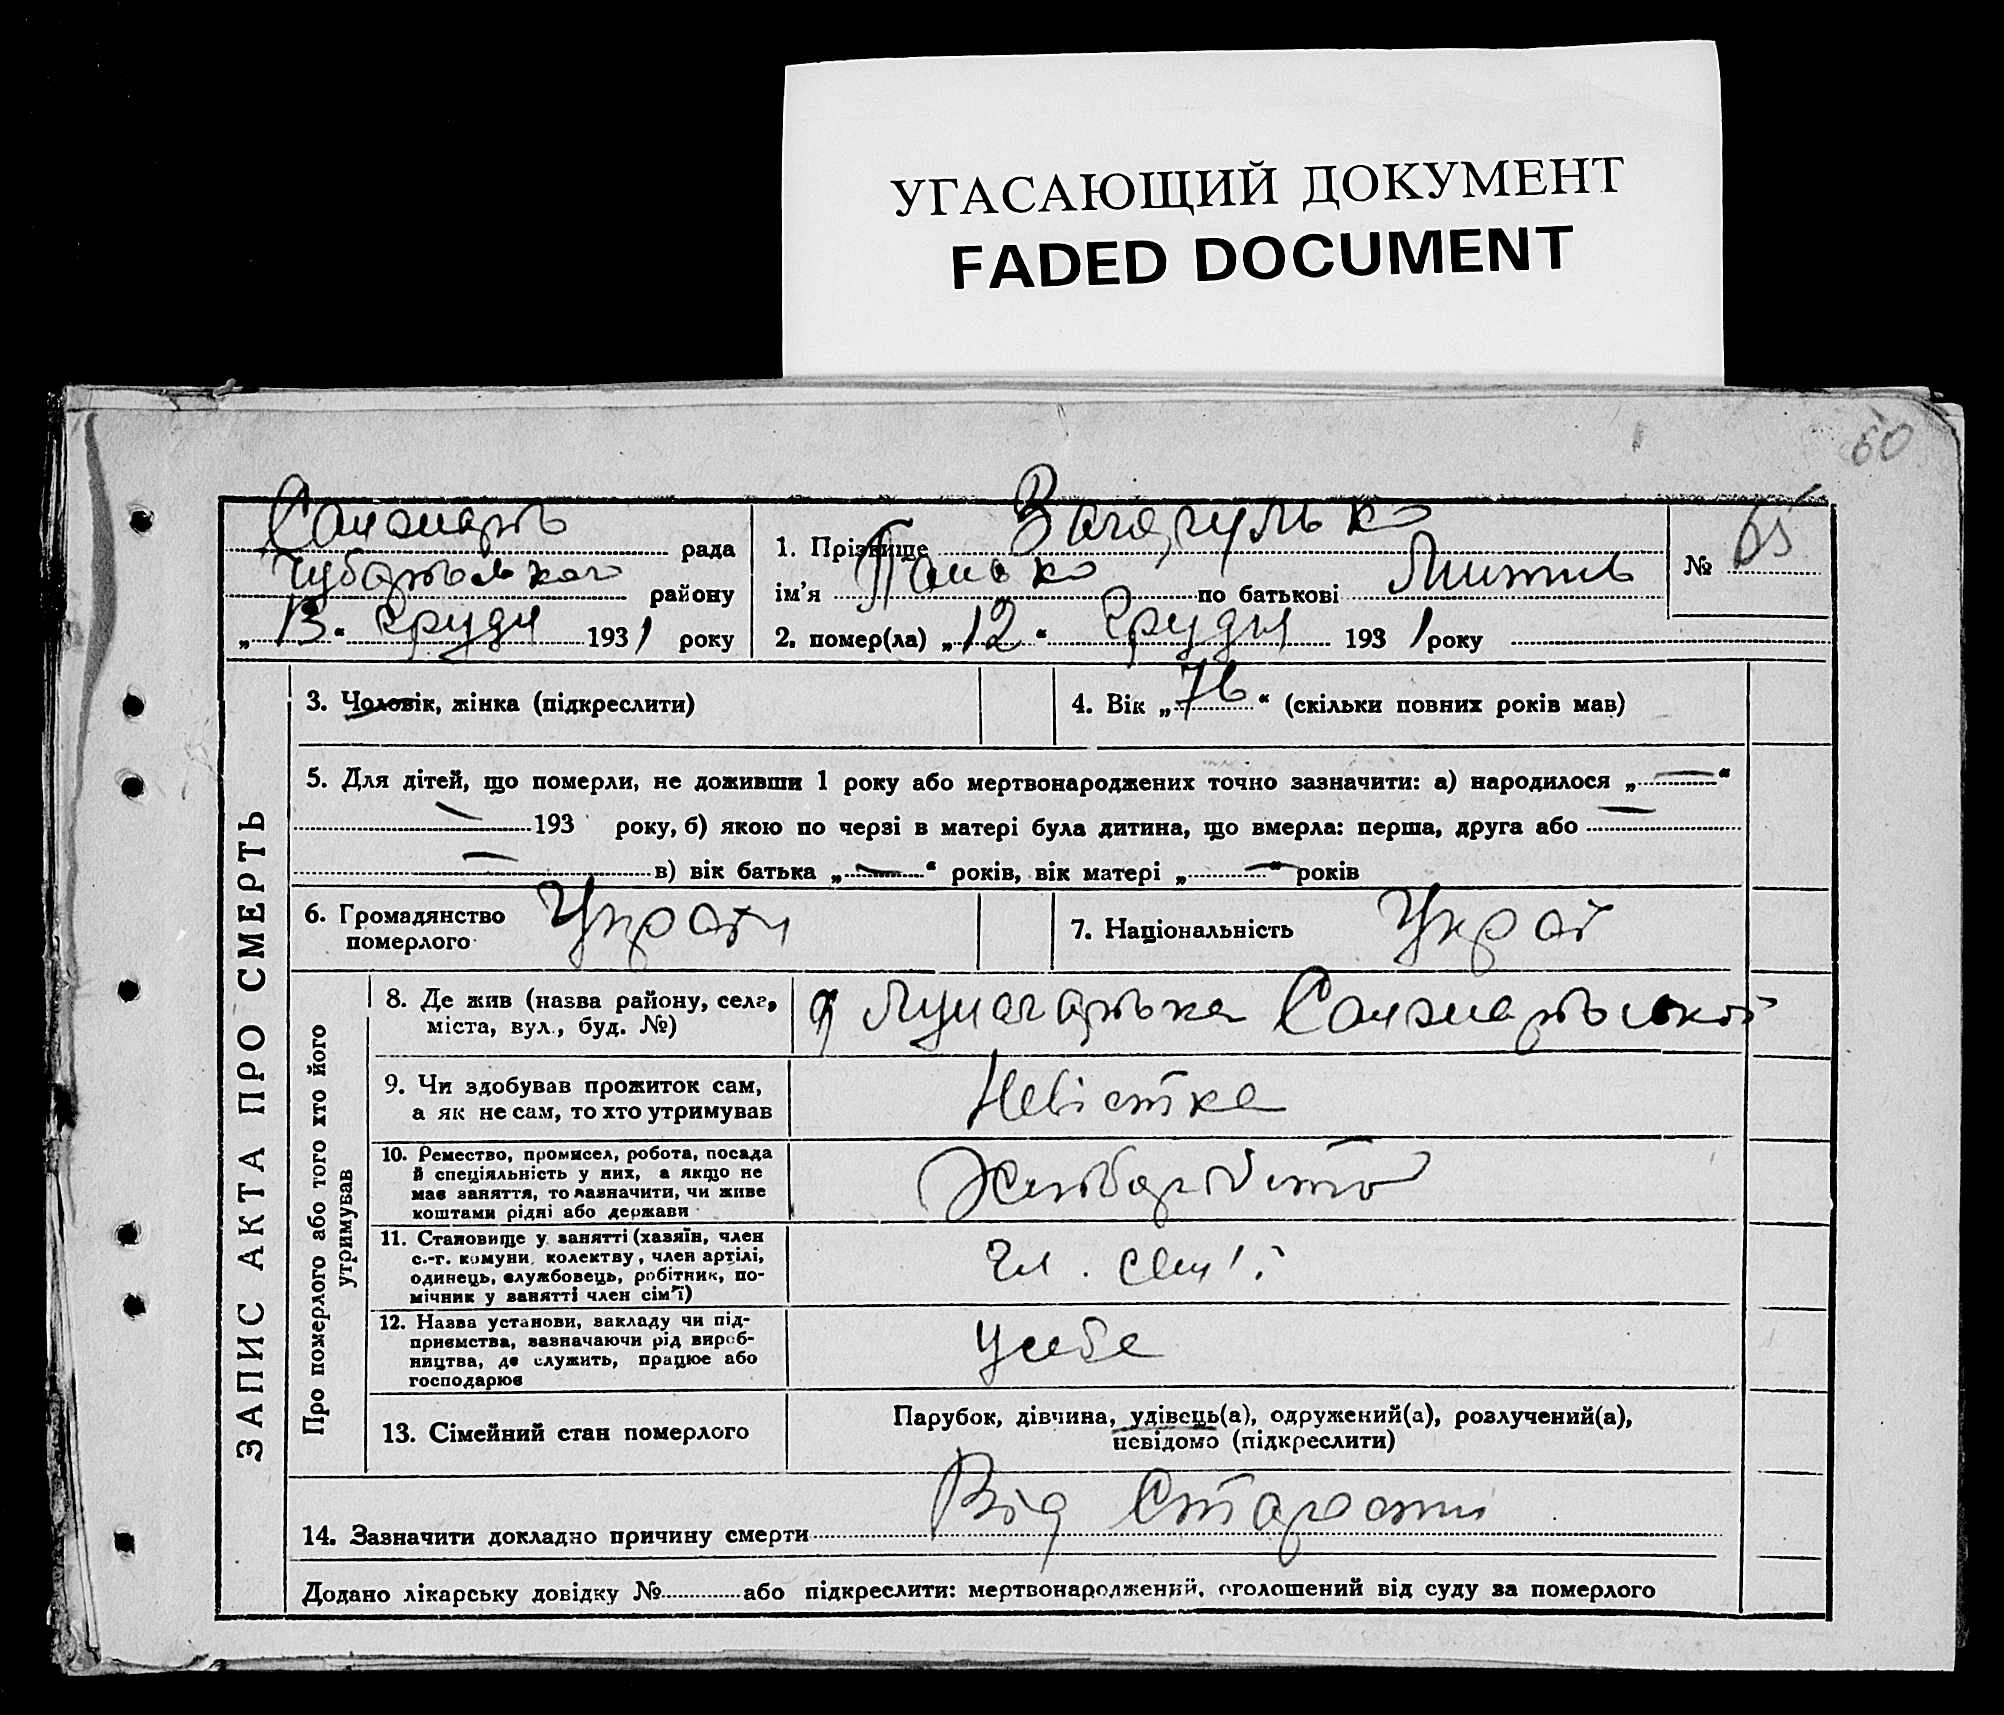 УГАСАЮЩИЙ ДОКУМЕНТ
FADED DOCUMENT
60
рада
району
„ 13 “ грудня 1931 року
1. Прізвище
ім'я Панько по батькові
№ 65
2. помер(ла) „ 12 “ грудня 1931 року
ЗАПИС АКТА ПРО СМЕРТЬ
3. Чоловік, жінка (підкреслити)
4. Вік „ 76 “ (скільки повних років мав)
5. Для дітей, що померли, не доживши 1 року або мертвонароджених точно зазначити: а) народилося „ — “
— 193 року, б) якою по черзі в матері була дитина, що вмерла: перша, друга або —
— в) вік батька „ — “ років, вік матері „ — “ років
6. Громадянство
померлого
7. Національність
Про померлого або того хто його
утримував
8. Де жив (назва району, села,
міста, вул., буд. №)
9. Чи здобував прожиток сам,
а як не сам, то хто утримував
Невістка
10. Ремество, промисел, робота, посада
й спеціяльність у них, а якщо не
має заняття, то зазначити, чи живе
коштами рідні або держави
Хліборобство
11. Становище у занятті (хазяїн, член
с.-г. комуни, колектву, член артілі,
одинець, службовець, робітник, по-
мічник у занятті член сім'ї)
Чл. сем'ї
12. Назва установи, закладу чи під-
приємства, зазначаючи рід вироб-
ництва, де служить, працює або
господарює
У себе
13. Сімейний стан померлого
Парубок, дівчина, удівець(а), одружений(а), розлучений(а),
невідомо (підкреслити)
14. Зазначити докладно причину смерти Від Старости
Додано лікарську довідку № або підкреслити: мертвонароджений, оголошений від суду за померлого